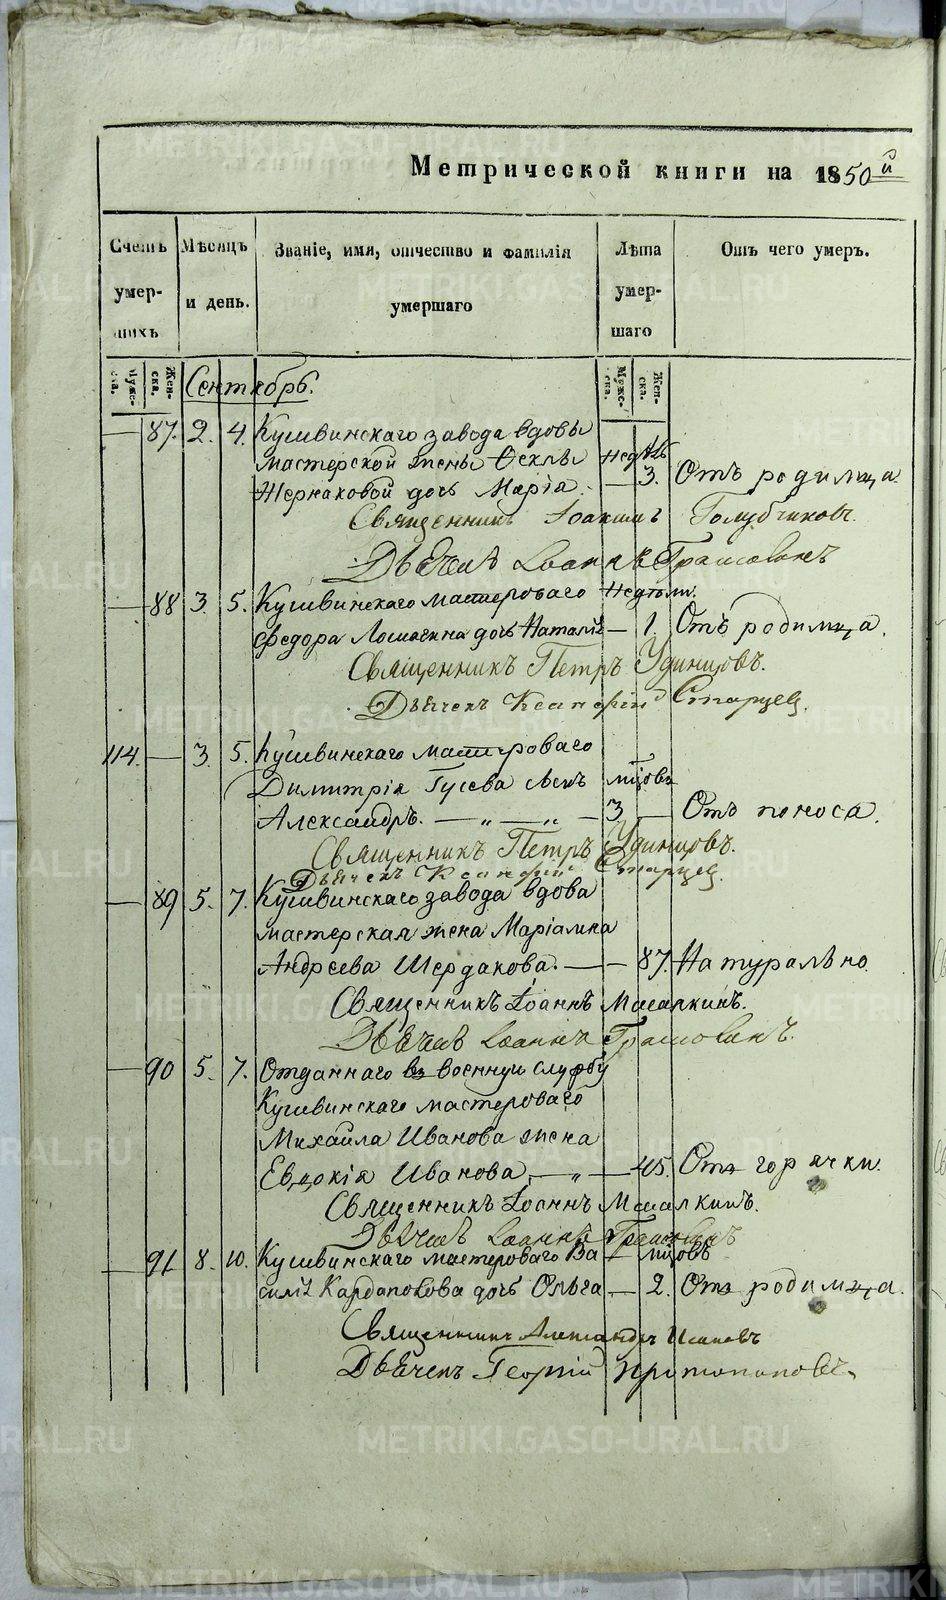 Метрической книги на 1850й
Счетъ умер- шихъ
Мѣсяцъ и день.
Званіе, имя, отчество и фамилія умершаго
Лѣта умер- шаго
Отъ чего умеръ.
Муже- ска. Жен- ска. Сентябрь. Муже- ска. Жен- ска.
— 87. 2. 4. Кушвинскаго завода вдовы
мастерской жены Ѳеклы недѣль
Жернаковой дочь Марія. — 3. Отъ родимца.
Священникъ Іоакимъ Голубчиковъ.
Дьячекъ Іоаннъ
— 88 3. 5. Кушвинскаго мастероваго недѣли.
Федора Лошагина дочь Наталія — 1. Отъ родимца.
Священникъ Петръ Удинцовъ.
Дьячекъ Ксанфій Старцев.
114. — 3. 5. Кушвинскаго мастероваго
Димитрія Гусева сынъ мѣсовъ
Александръ. — „ — „ — 3 — Отъ поноса.
Священникъ Петръ Удинцовъ.
Дьячекъ Ксанфій Старцев.
— 89 5. 7. Кушвинскаго завода вдова
мастерская жена Маріамна
Андреева Шердакова. — — 87. Натурально
Священникъ Іоаннъ Масалкинъ.
Дьячекъ Іоаннъ
— 90 5. 7. Отданнаго въ военную службу
Кушвинскаго мастероваго
Михайла Иванова жена
Евдокія Иванова, — „ — 45. Отъ горячки.
Священникъ Іоаннъ Масалкинъ.
Дьячекъ Іоаннъ
— 91 8. 10. Кушвинскаго мастероваго Ва- мѣсовъ
силія Кардапокова дочь Ольга — 2. Отъ родимца.
Священникъ Александръ
Дьячекъ Георгій Протопоповъ.
METRIKI.GASO-URAL.RU